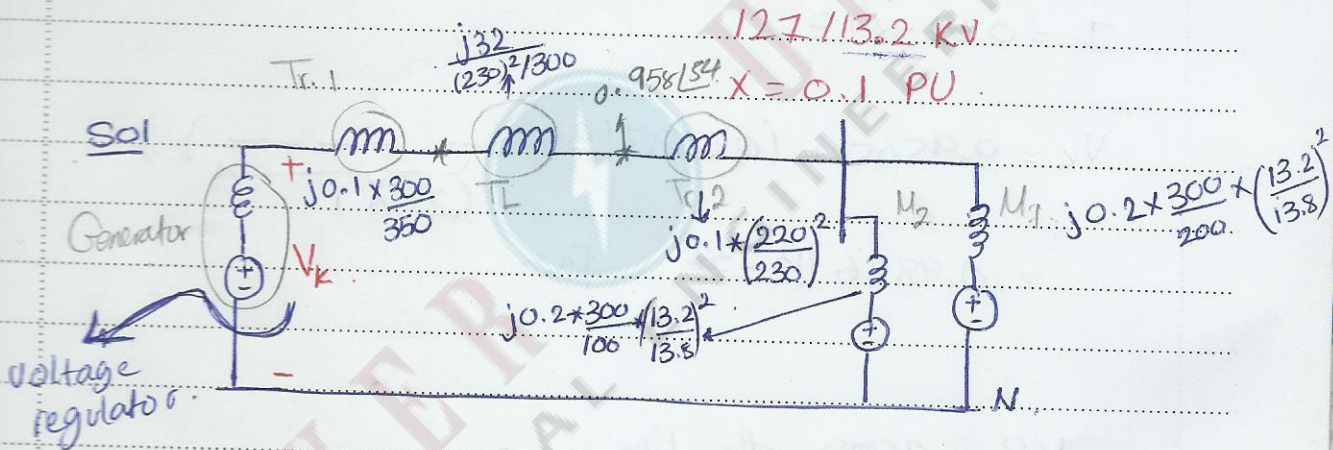 127/13.2 KV
X = 0.1 PU.
j32
(230)²/300
Tr. 1
0.958
Sol
+
j0.1 × 300/350
TL
Tr. 2
j0.1 * (220/230)²
M2
M1
j0.2 × 300/200 × (13.2/13.8)²
Generator
Vk
j0.2 * 300/100 * (13.2/13.8)²
voltage
regulator.
-
N.